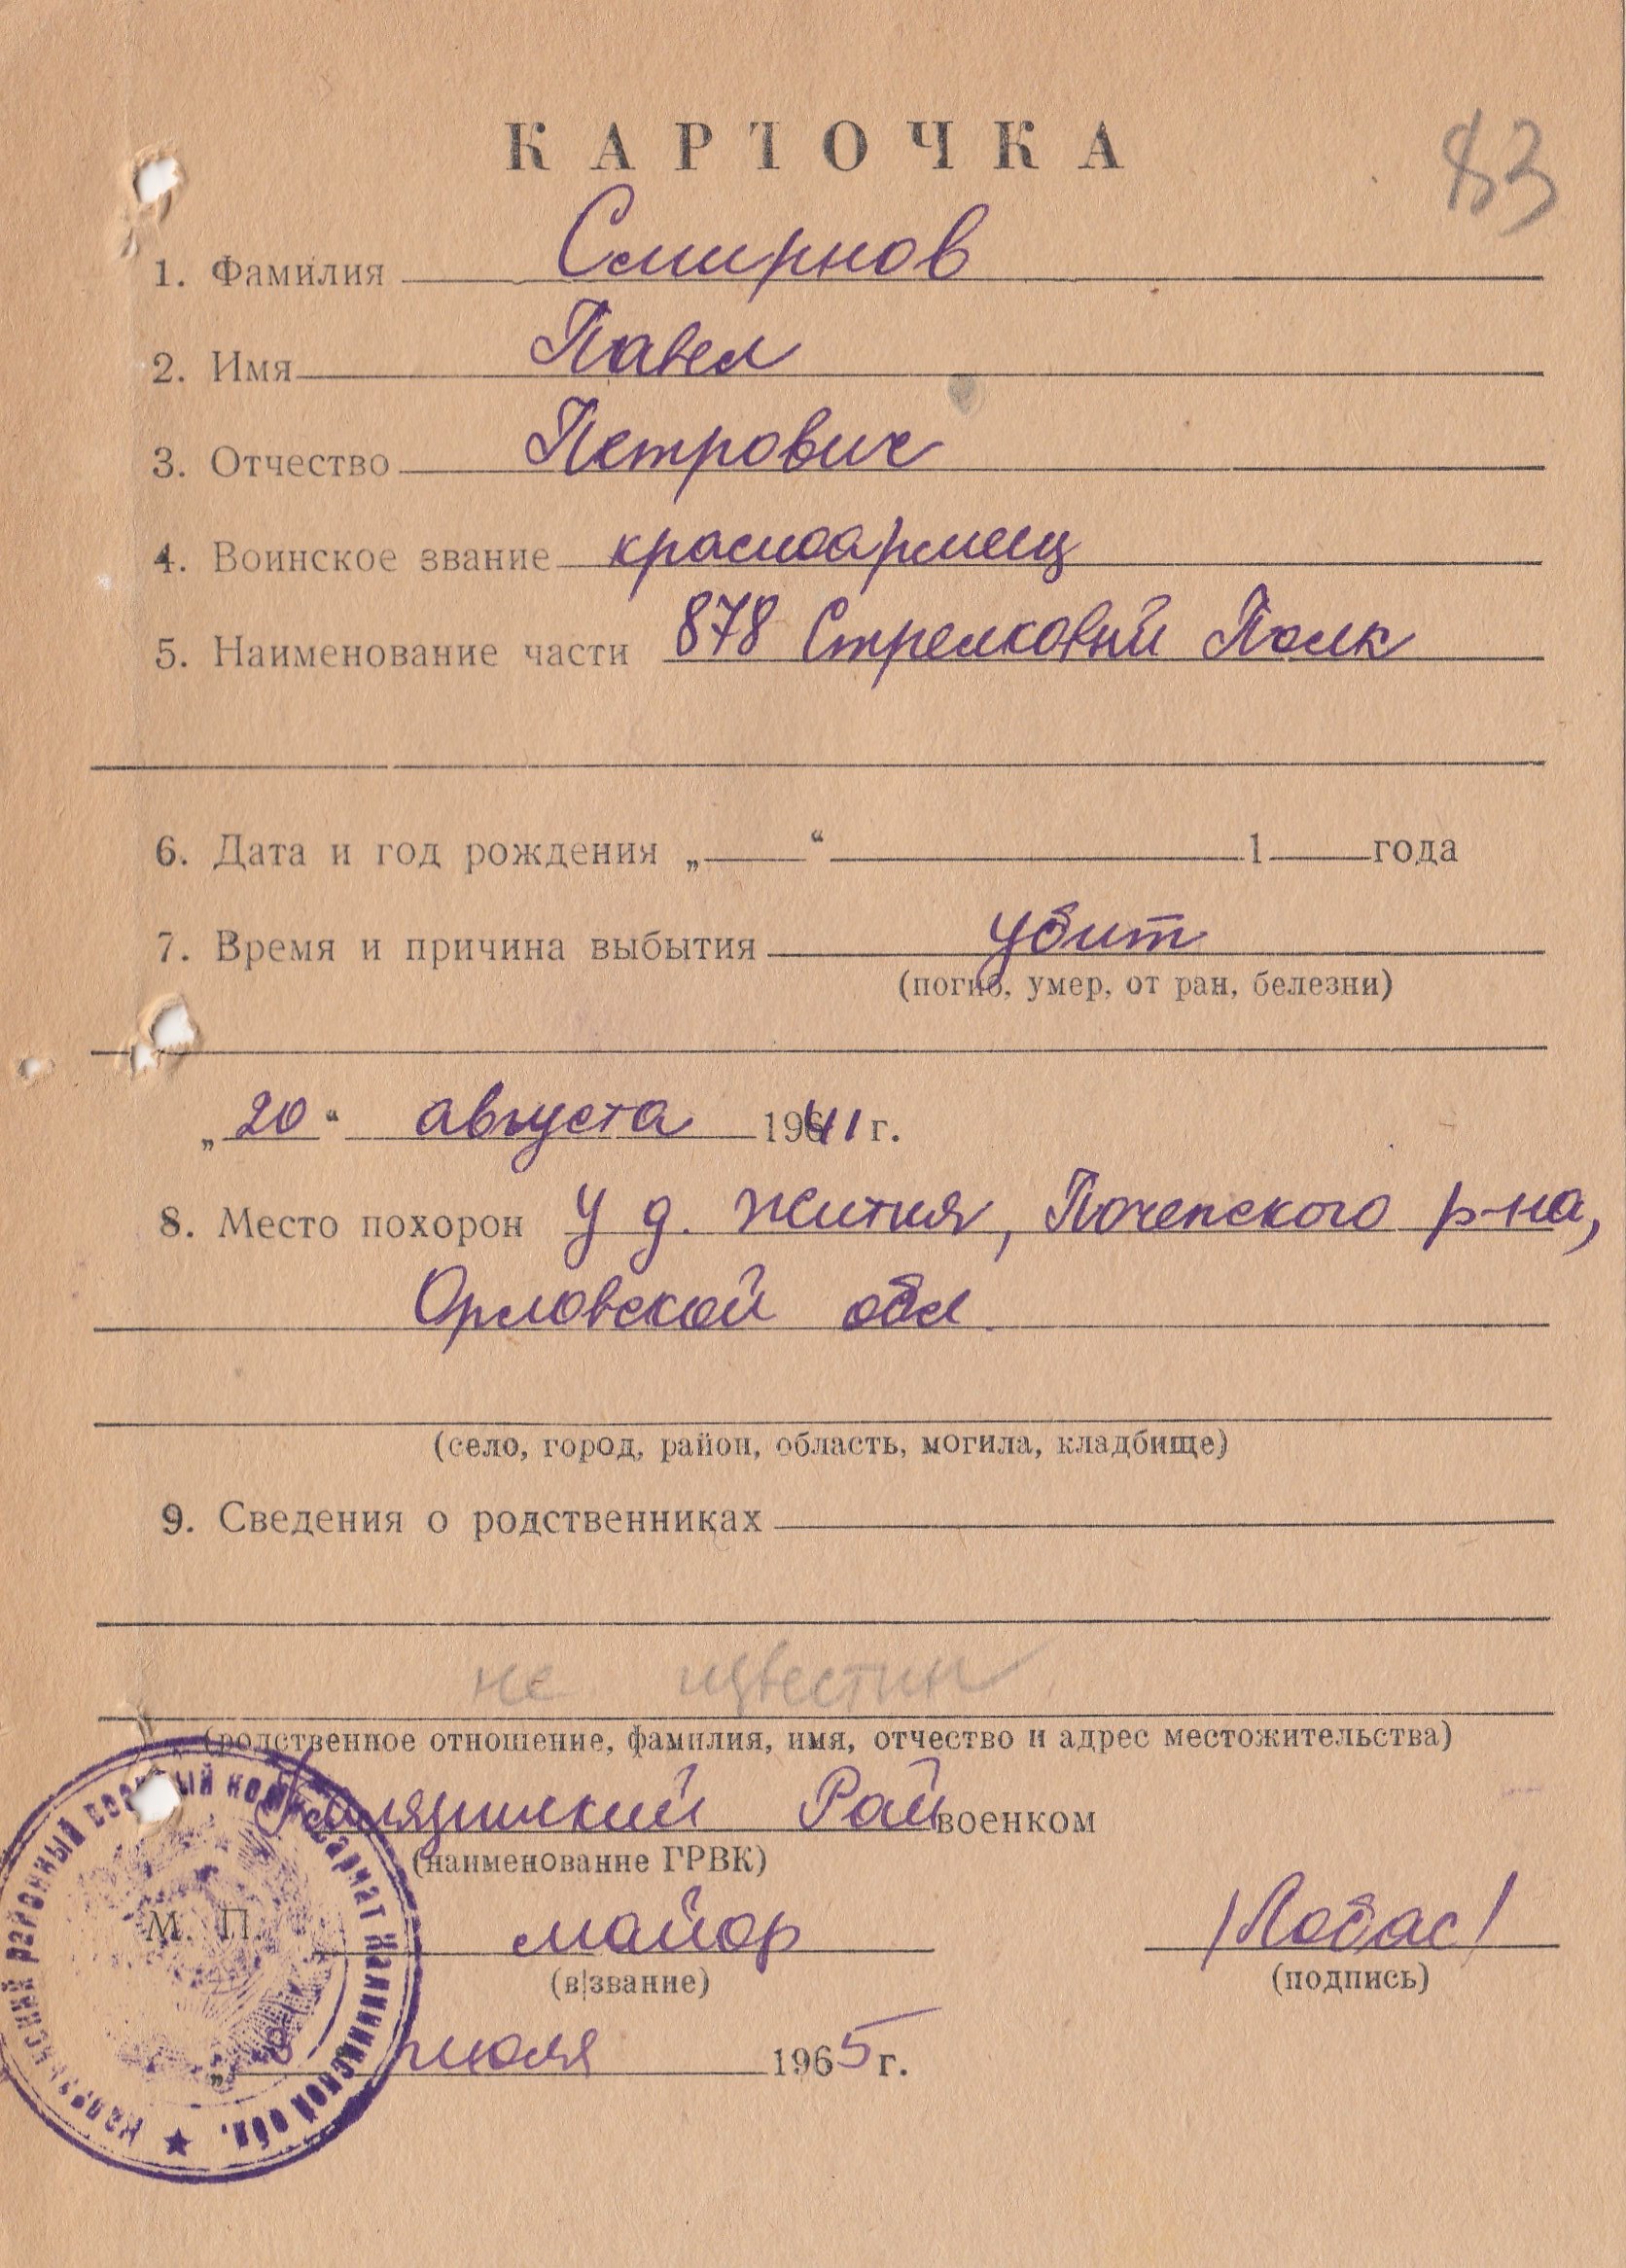 КАРТОЧКА
83
1. Фамилия Смирнов
2. Имя Павел
3. Отчество Петрович
4. Воинское звание красноармеец
5. Наименование части 878 Стрелковый Полк
6. Дата и год рождения „ “ 1 года
7. Время и причина выбытия убит
(погиб, умер, от ран, белезни)
„20“ августа 1941 г.
8. Место похорон У д. Житня, Почепского р-на,
Орловской обл.
(село, город, район, область, могила, кладбище)
9. Сведения о родственниках
не известны
(родственное отношение, фамилия, имя, отчество и адрес местожительства)
Калязинский Райвоенком
(наименование ГРВК)
М. П. майор /Лобас/
(в|звание) (подпись)
июля 1965 г.
Калязинский районный военный комиссариат Калининской обл.